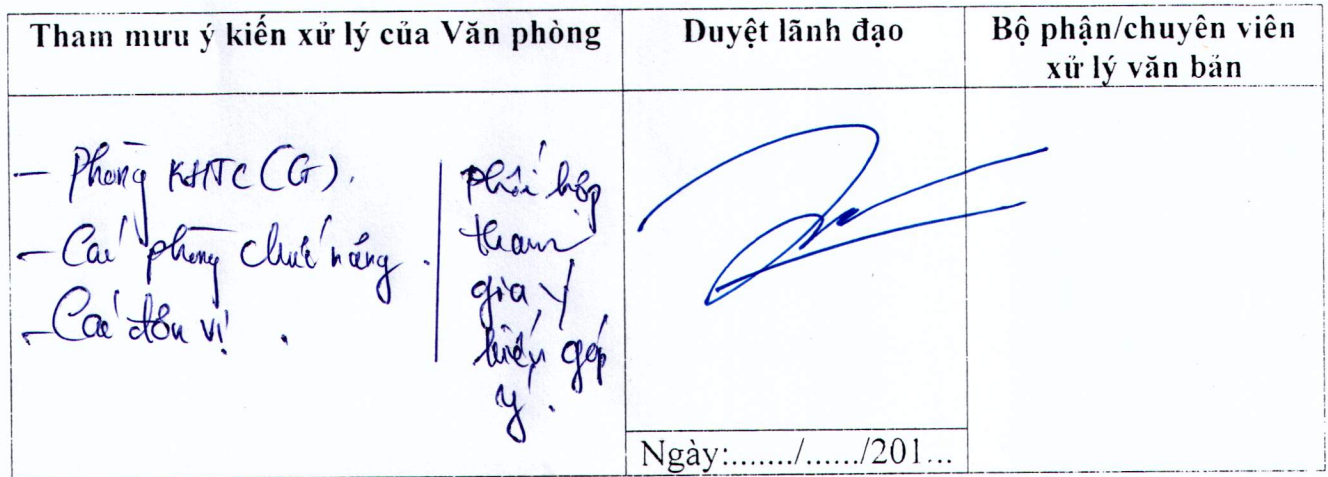 Tham mưu ý kiến xử lý của Văn phòng
Duyệt lãnh đạo
Bộ phận/chuyên viên
xử lý văn bản
- Phòng KHTC (G).
- Các phòng chức năng.
- Các đơn vị.
phối hợp
tham
gia ý
kiến góp
ý.
Ngày:......./....../201...